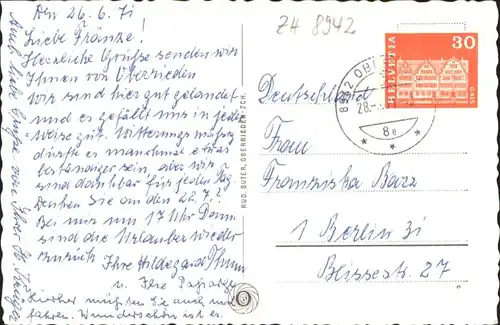 ZH 8942
Den 26.6.71
Liebe Fränze!
Herzliche Grüße senden wir
Ihnen von Oberrieden
Wir sind hier gut gelandet
und es gefällt uns in jeder
Weise gut. Witterungsmäßig
dürfte es manchmal etwas
beständiger sein, aber wir
sind dankbar für jeden Tag
Denken Sie an den 28.7.?
Bei uns um 17 Uhr Dann
sind die Urlauber wieder
zurück Ihre Hildegard
u. Ihre
Hierher müßten Sie auch mal
fahren. Wunderschön ist es.
Auch liebe Grüße von Ihrer
RUD. SUTER, OBERRIEDEN-ZCH.
HELVETIA 30
GAIS
8942 OBE
28.
8e
Deutschland
Frau
Franziska Barz
1 Berlin 31
Blissestr. 27